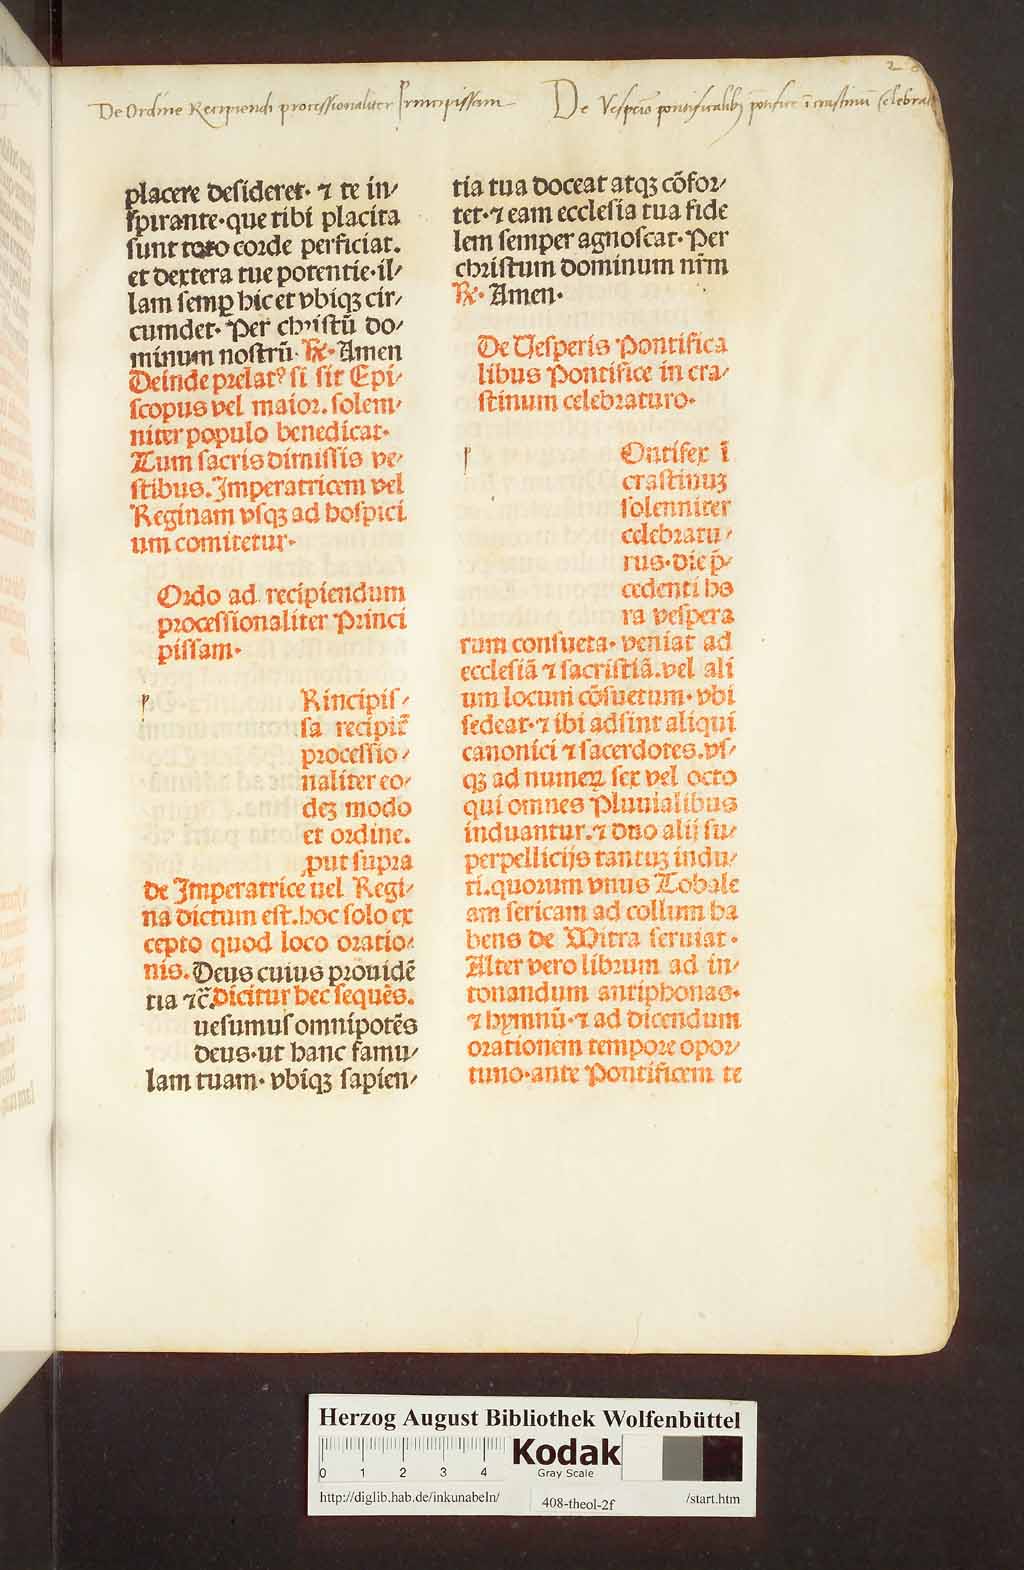 De Ordine Recipiendi processionaliter Principissam
De Vesperis pontificalibꝫ pontifice ī crastinū Celebra
placere desideret· ⁊ te in⸗
spirante·que tibi placita
sunt toto corde perficiat.
et dextera tue potentie·il⸗
lam semꝑ hic et vbiqꝫ cir⸗
cumdet· Per christū do⸗
minum nostrū· ℞· Amen
Deinde prelatꝰ si sit Epi⸗
scopus vel maior. solem⸗
niter populo benedicat·
Tum sacris dimissis ve⸗
stibus. Imperatricem vel
Reginam vsqꝫ ad hospici
um comitetur·
Ordo ad recipiendum
processionaliter Princi
pissam·
p
Rincipis⸗
sa recipit̄
processio⸗
naliter eo⸗
deꝫ modo
et ordine.
ꝓut supra
de Imperatrice uel Regi⸗
na dictum est. hoc solo ex
cepto quod loco oratio⸗
nis. Deus cuius prouidē
tia ⁊c̄. Dicitur hec sequēs.
uesumus omnipotēs
deus·ut hanc famu⸗
lam tuam· vbiqꝫ sapien⸗
tia tua doceat atqꝫ cōfor⸗
tet·⁊ eam ecclesia tua fide
lem semper agnoscat· Per
christum dominum nr̄m
℞· Amen·
De Uesperis Pontifica
libus Pontifice in cra⸗
stinum celebraturo·
p
Ontifex ī
crastinuꝫ
solenniter
celebratu⸗
rus·die p̄⸗
cedenti ho
ra vespera
rum consueta· veniat ad
ecclesiā ⁊ sacristiā.vel ali
um locum cōsuetum· vbi
sedeat·⁊ ibi adsint aliqui
canonici ⁊ sacerdotes.vs⸗
qꝫ ad numeꝝ sex vel octo
qui omnes Pluuialibus
induantur.⁊ duo alij su⸗
perpellicijs tantuꝫ indu⸗
ti.quorum vnus Tobale
am sericam ad collum ha
bens de Mitra seruiat·
Alter vero librum ad in⸗
tonandum antiphonas·
⁊ hymnū·⁊ ad dicendum
orationem tempore opor⸗
tuno·ante Pontificem te
Herzog August Bibliothek Wolfenbüttel
0 1 2 3 4
Kodak
Gray Scale
http://diglib.hab.de/inkunabeln/
408-theol-2f
/start.htm